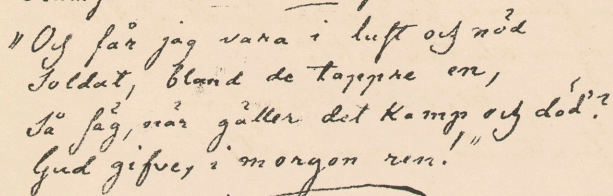 "Och får jag vara i lust och nöd
Soldat, bland de tappre en,
Så säg, när gäller det kamp och död?
Gud gifve, i morgon ren!"